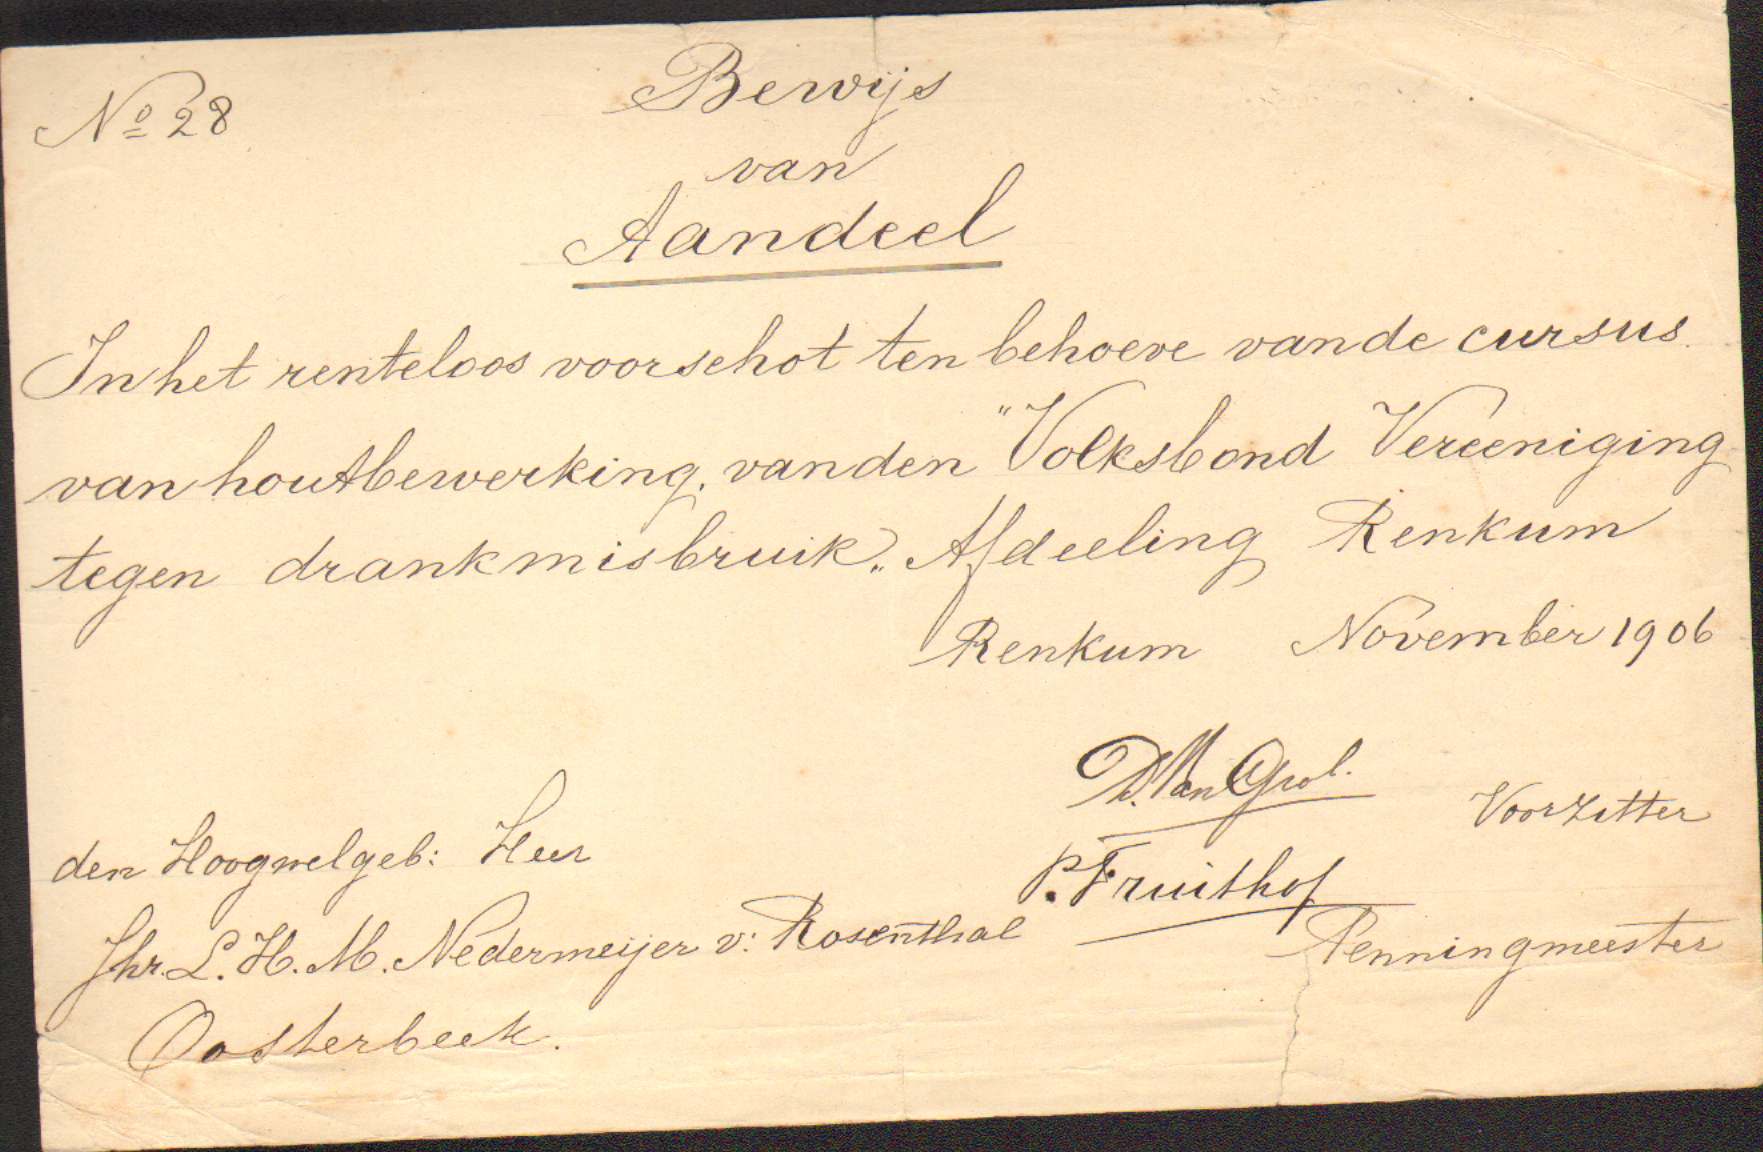 No 28
Bewijs
van
Aandeel
In het renteloos voorschot ten behoeve van de cursus
van houtbewerking, van den "Volksbond Vereeniging
tegen drankmisbruik„ Afdeeling Renkum
Renkum November 1906
D. Van Grol.
Voorzitter
P. Fruithof
Penningmeester
den Hoogwelgeb: Heer
Jhr. L. H. M. Nedermeijer v: Rosenthal
Oosterbeek.